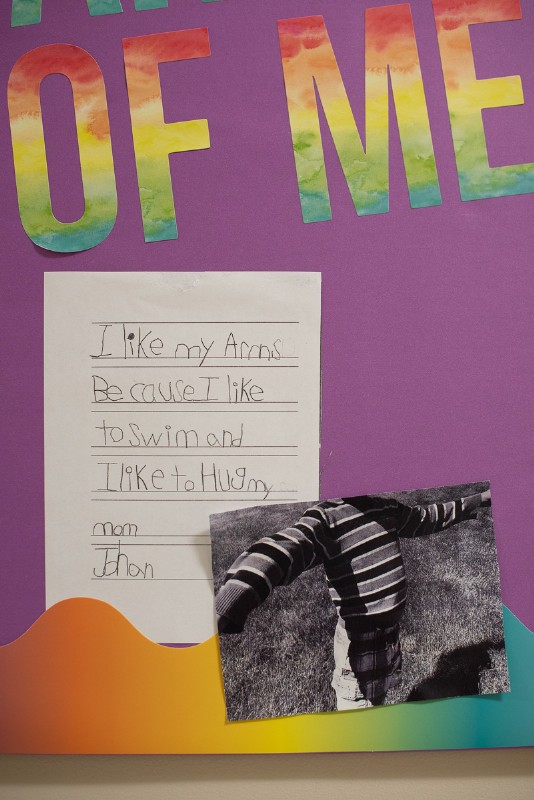 OF ME
I like my Arms
Because I like
to swim and
I like to Hug my
mom
Johan